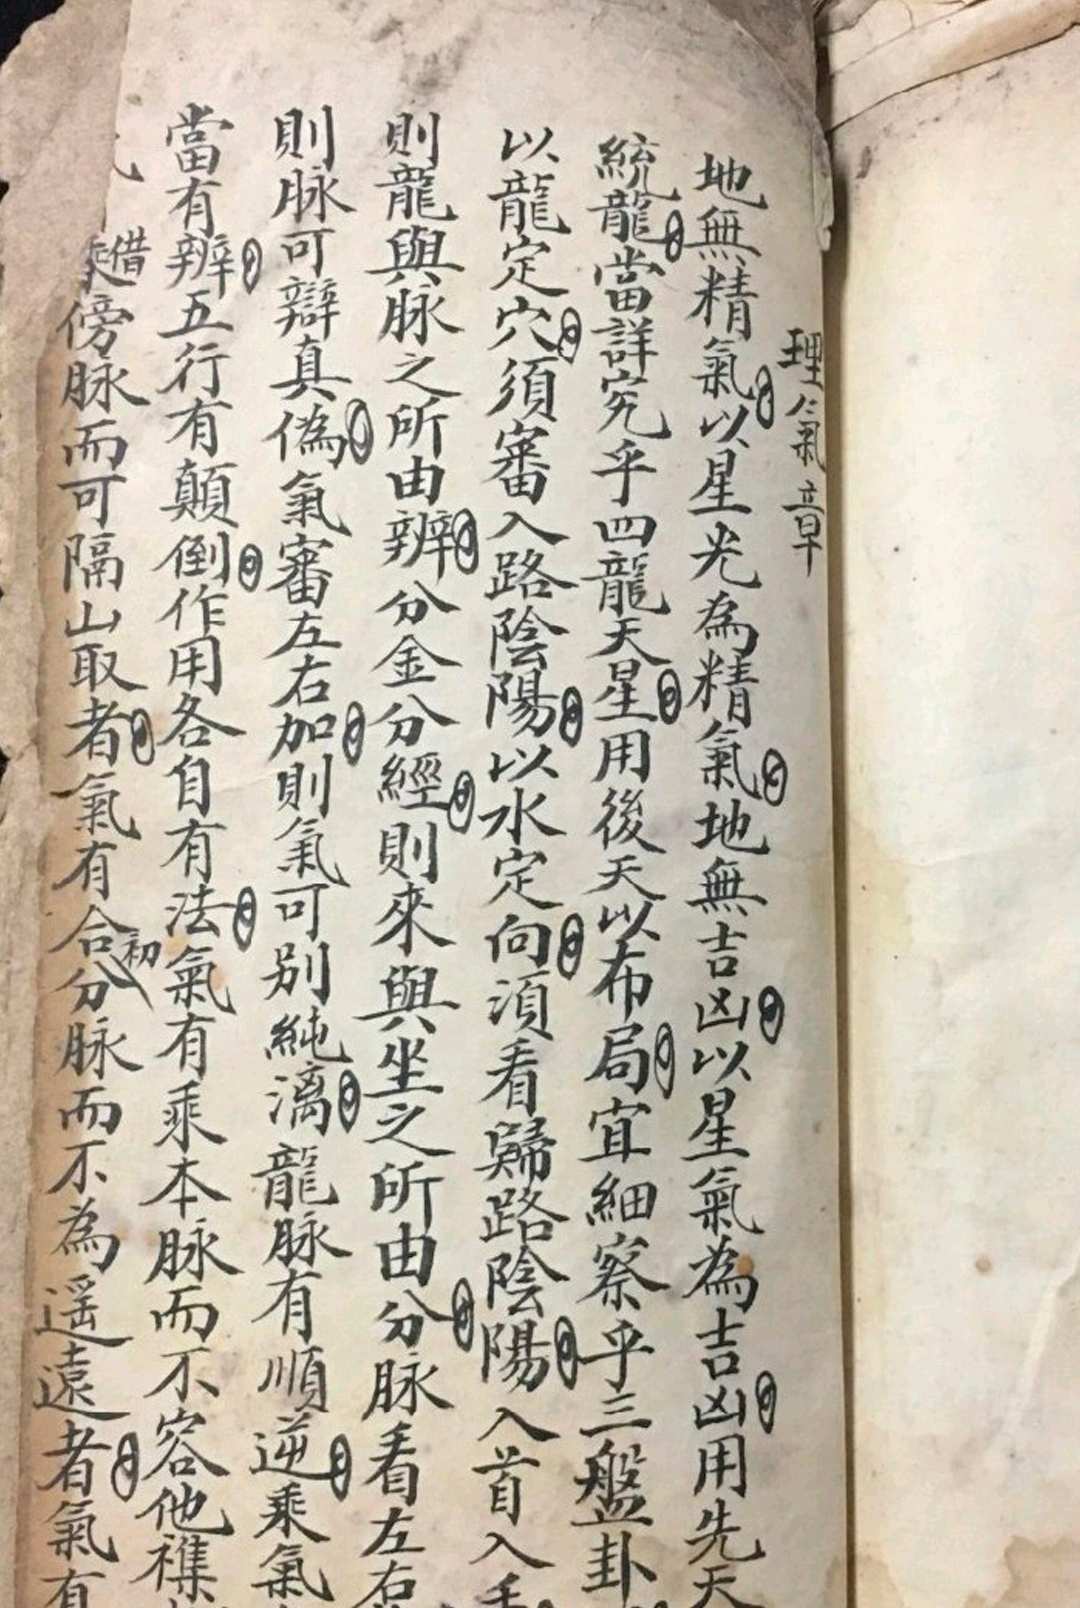 理氣章
地無精氣以星光為精氣地無吉凶以星氣為吉凶用先天
統龍當詳究乎四龍天星用後天以布局宜細察乎三盤卦
以龍定穴須審入路陰陽以水定向須看歸路陰陽入首入
則龍與脉之所由辨分金分經則來與坐之所由分脉看左右
則脉可辯真偽氣審左右加則氣可別純漓龍脉有順逆乘氣
當有辨五行有顛倒作用各自有法氣有乘本脉而不容他襍
借傍脉而可隔山取者氣有合初分脉而不為遥遠者氣有